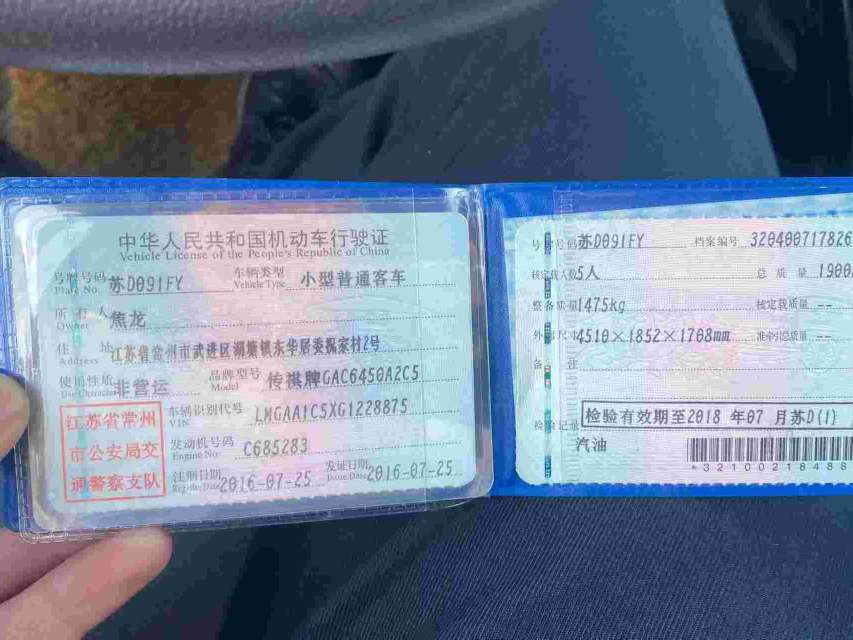 中华人民共和国机动车行驶证
Vehicle License of the People's Republic of China
号牌号码 苏D091FY 车辆类型 小型普通客车
Plate No. Vehicle Type
所有人 焦龙
Owner
住址 江苏省常州市武进区湖塘镇东华居委 家村2号
Address
使用性质 非营运 品牌型号 传祺牌GAC6450A2C5
Use Character Model
江苏省常州
市公安局交
通警察支队
车辆识别代号 LMGAA1C5XG1228875
VIN
发动机号码 C685283
Engine No.
注册日期 2016-07-25 发证日期 2016-07-25
Register Date Issue Date
号牌号码 苏D091FY 档案编号 320400717826
核定载人数 5人 总质量 1900
整备质量 1475kg 核定载质量 --
外廓尺寸 4510×1852×1708mm 准牵引总质量 --
备注
检验有效期至2018年07月苏D(1)
检验记录
汽油
*3210021848